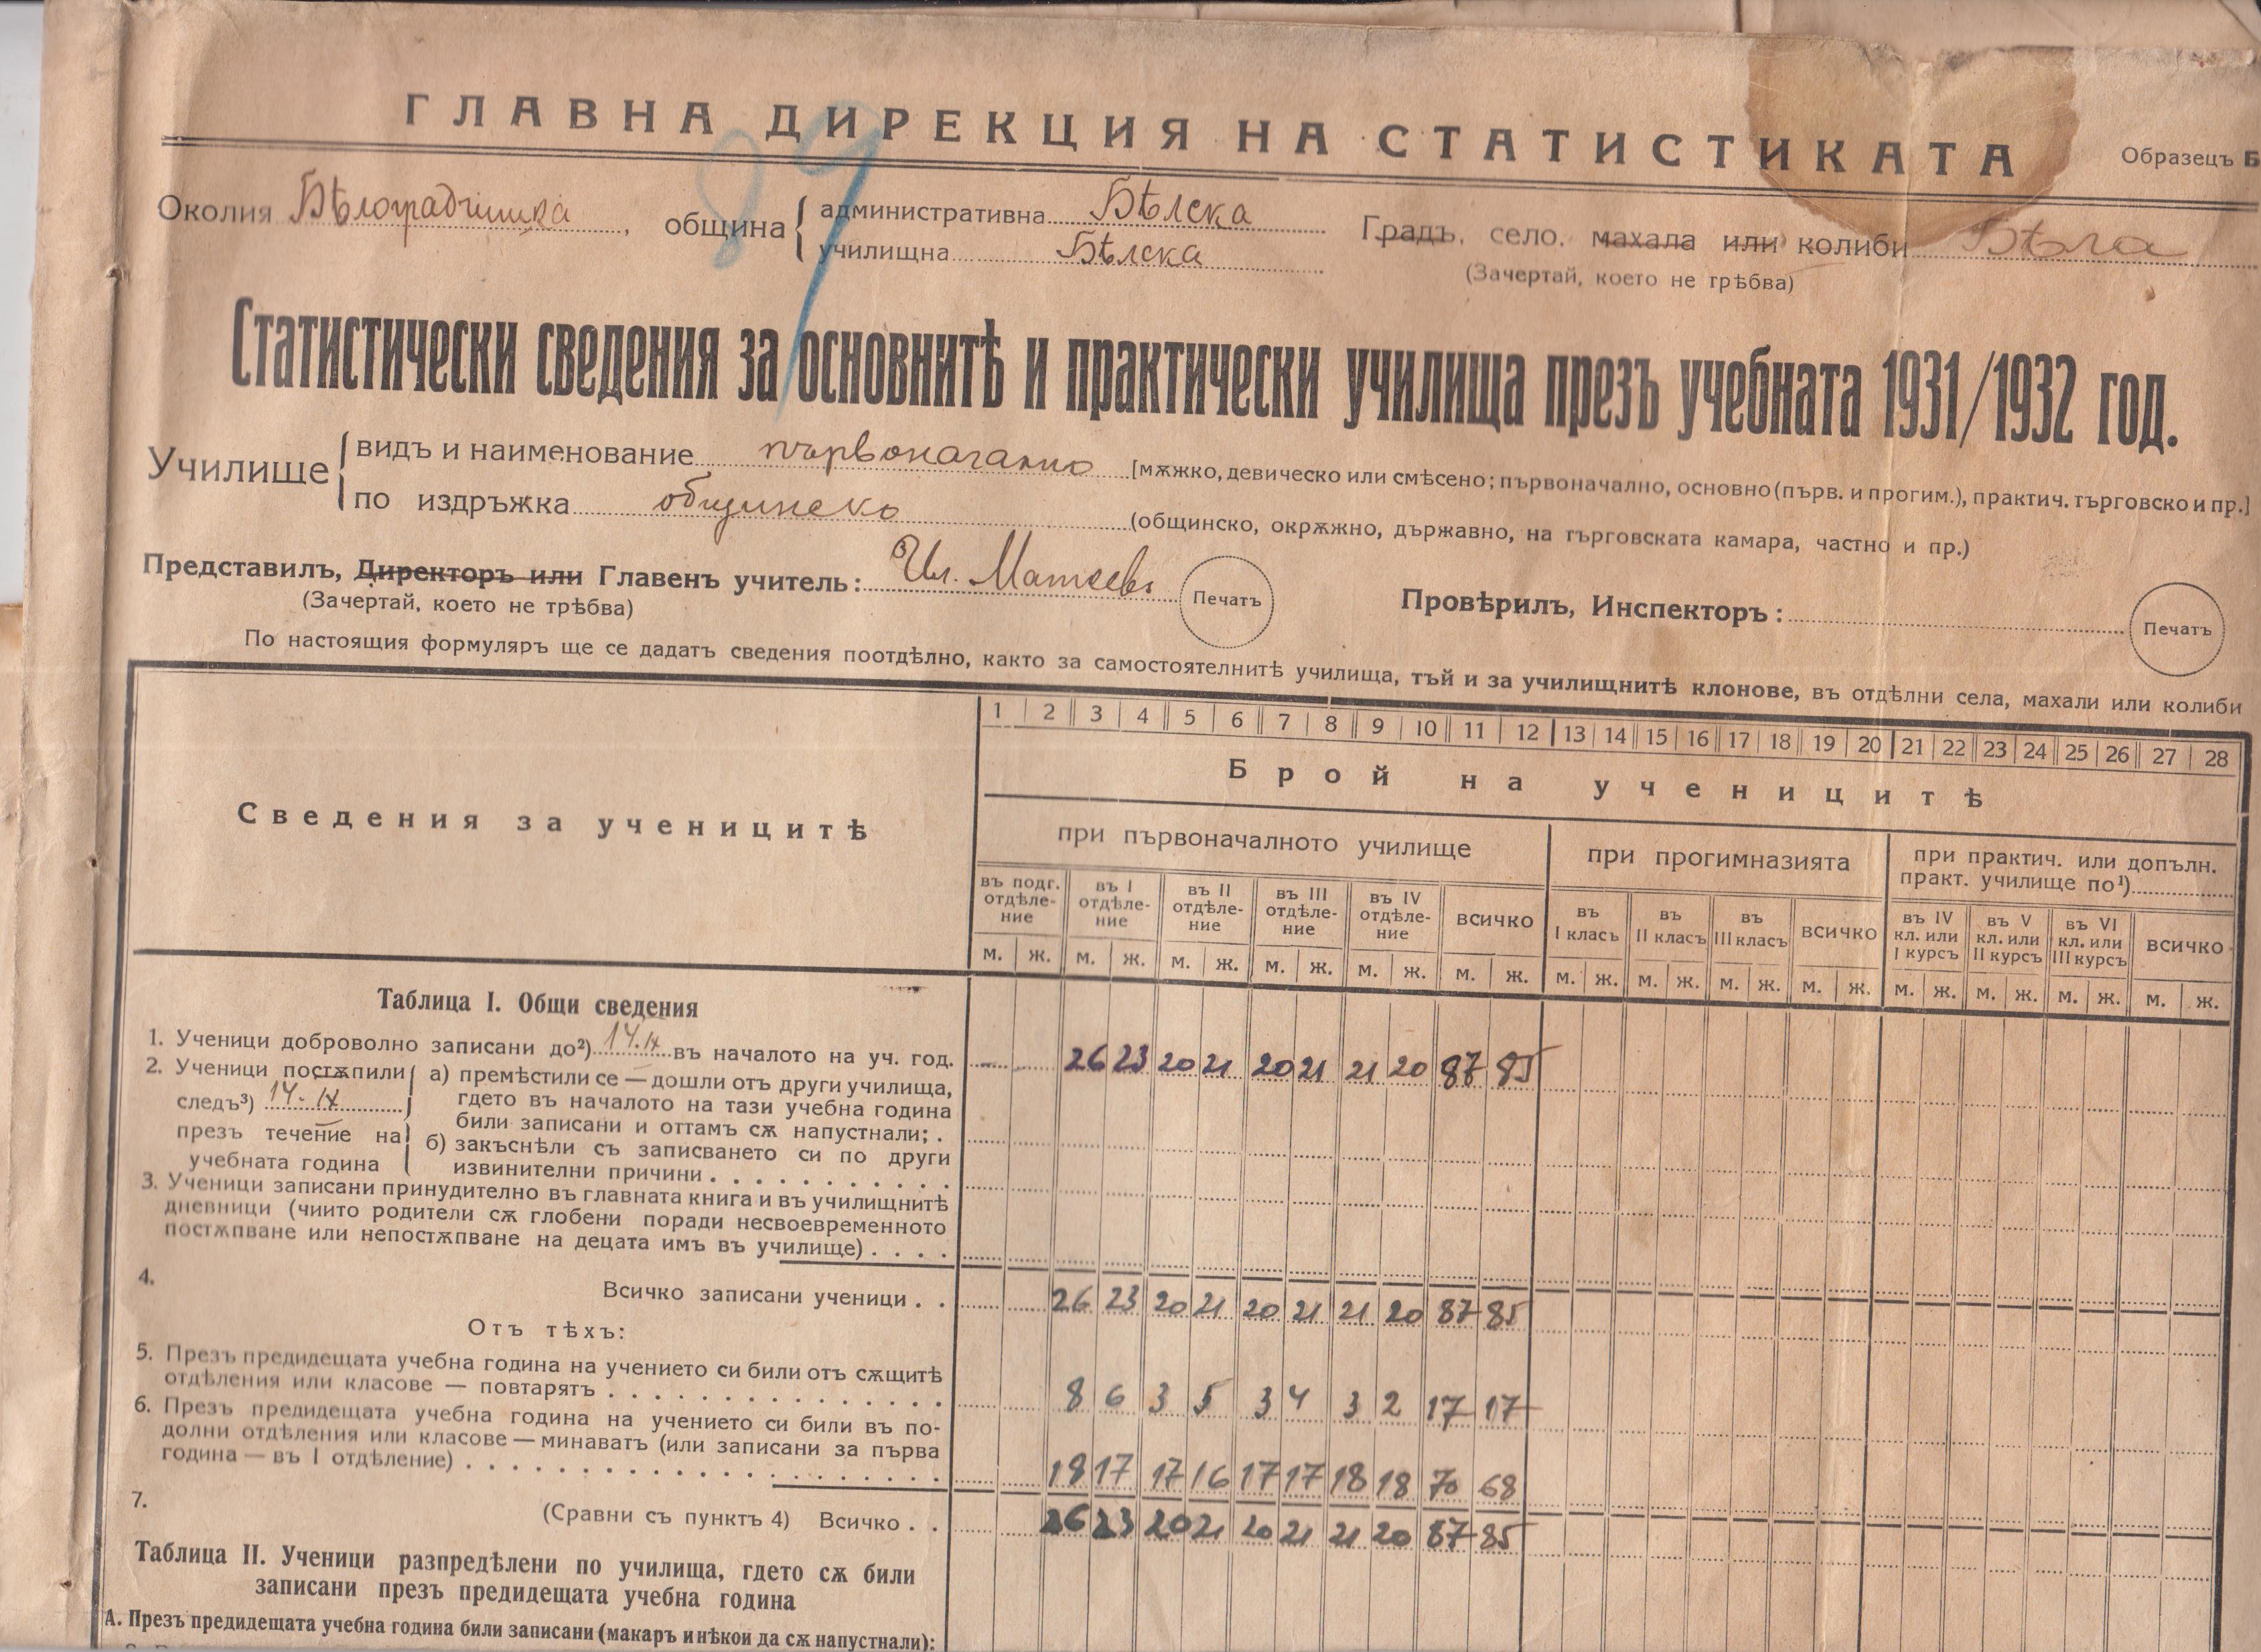 ГЛАВНА ДИРЕКЦИЯ НА СТАТИСТИКАТА
Образецъ Б
89
Околия Бѣлоградчишка, община { административна Бѣлска
училищна Бѣлска
Градъ, село, махала или колиби Бѣла
(Зачертай, което не трѣбва)
Статистически сведения за основнитѣ и практически училища презъ учебната 1931/1932 год.
Училище { видъ и наименование първоначално [мѫжко, девическо или смѣсено; първоначално, основно (първ. и прогим.), практич. търговско и пр.]
по издръжка общинско (общинско, окрѫжно, държавно, на търговската камара, частно и пр.)
Представилъ, Директоръ или Главенъ учитель: Ил. Матеевъ Печатъ Провѣрилъ, Инспекторъ: Печатъ
(Зачертай, което не трѣбва)
По настоящия формуляръ ще се дадатъ сведения поотдѣлно, както за самостоятелнитѣ училища, тъй и за училищнитѣ клонове, въ отдѣлни села, махали или колиби
1 2 3 4 5 6 7 8 9 10 11 12 13 14 15 16 17 18 19 20 21 22 23 24 25 26 27 28
Сведения за ученицитѣ
Брой на ученицитѣ
при първоначалното училище
при прогимназията
при практич. или допълн.
практ. училище по¹)
въ подг. отдѣле-ние
въ I отдѣле-ние
въ II отдѣле-ние
въ III отдѣле-ние
въ IV отдѣле-ние
всичко
въ I класъ
въ II класъ
въ III класъ
всичко
въ IV кл. или I курсъ
въ V кл. или II курсъ
въ VI кл. или III курсъ
всичко
м. ж. м. ж. м. ж. м. ж. м. ж. м. ж. м. ж. м. ж. м. ж. м. ж. м. ж. м. ж. м. ж. м. ж.
Таблица I. Общи сведения
1. Ученици доброволно записани до²) 14.IX въ началото на уч. год. 26 23 20 21 20 21 21 20 87 85
2. Ученици постѫпили
следъ³) 14.IX
презъ течение на
учебната година
а) премѣстили се — дошли отъ други училища,
гдето въ началото на тази учебна година
били записани и оттамъ сѫ напустнали;
б) закъснѣли съ записването си по други
извинителни причини
3. Ученици записани принудително въ главната книга и въ училищнитѣ
дневници (чиито родители сѫ глобени поради несвоевременното
постѫпване или непостѫпване на децата имъ въ училище)
4. Всичко записани ученици . . 26 23 20 21 20 21 21 20 87 85
Отъ тѣхъ:
5. Презъ предидещата учебна година на учението си били отъ сѫщитѣ
отдѣления или класове — повтарятъ 8 6 3 5 3 4 3 2 17 17
6. Презъ предидещата учебна година на учението си били въ по-
долни отдѣления или класове — минаватъ (или записани за първа
година — въ I отдѣление) 18 17 17 16 17 17 18 18 70 68
7. (Сравни съ пунктъ 4) Всичко . . 26 23 20 21 20 21 21 20 87 85
Таблица II. Ученици разпредѣлени по училища, гдето сѫ били
записани презъ предидещата учебна година
А. Презъ предидещата учебна година били записани (макаръ и нѣкои да сѫ напустнали):